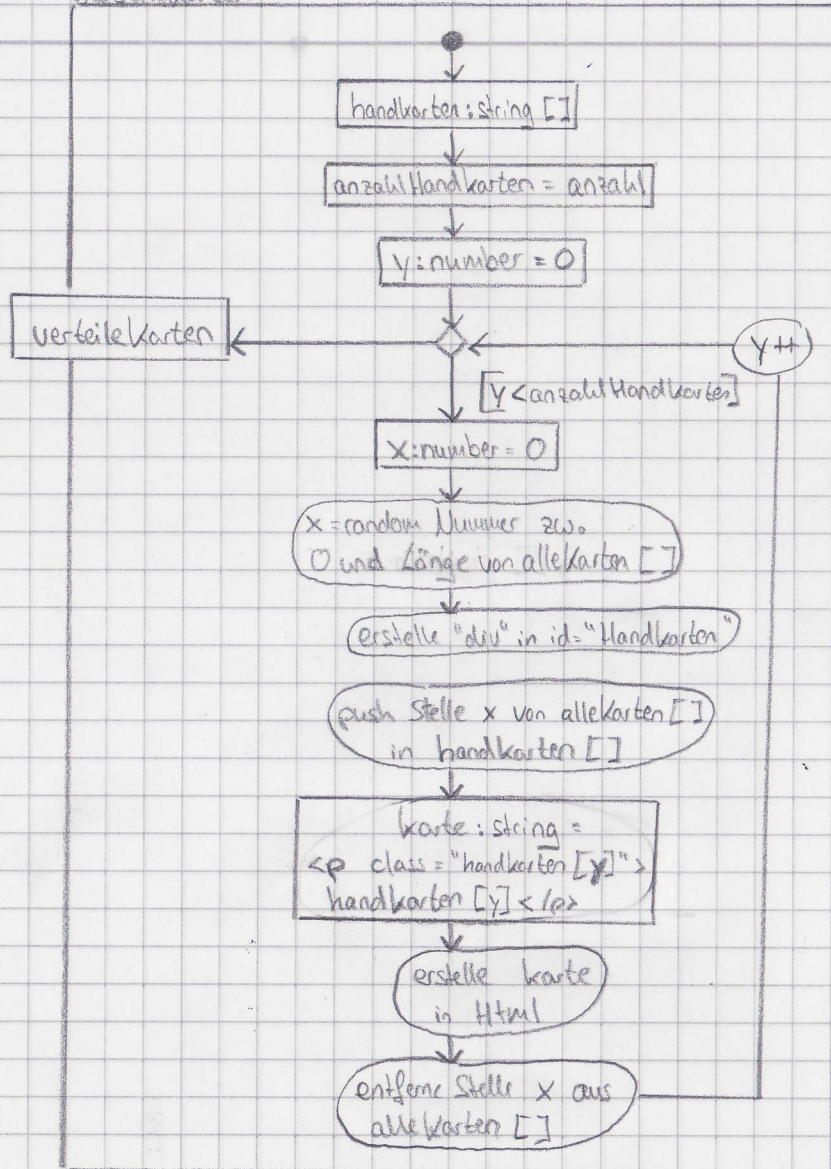 handkarten : string []
anzahlHandkarten = anzahl
y : number = 0
verteileKarten
y++
[y < anzahlHandkarten]
x : number = 0
x = random Nummer zw.
0 und Länge von alleKarten []
erstelle "div" in id="Handkarten"
push Stelle x von alleKarten []
in handkarten []
karte : string =
<p class = "handkarten [y]">
handkarten [y] </p>
erstelle karte
in Html
entferne Stelle x aus
alleKarten []